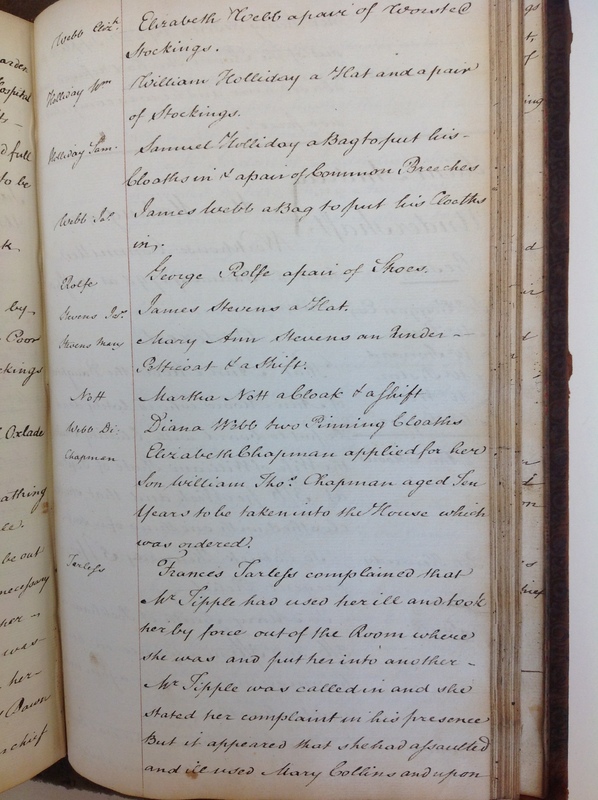 Webb Elizth. Elizabeth Webb a pair of Worsted
Stockings.
Holliday Wm William Holliday a Hat and a pair
of Stockings.
Holliday Sam. Samuel Holliday a Bag to put his
Cloaths in & a pair of Common Breeches
Webb Jas. James Webb a Bag to put his Cloaths
in.
Rolfe George Rolfe a pair of Shoes.
Stevens Jas. James Stevens a Hat.
Stevens Mary Mary Ann Stevens an Under
Petticoat & a Shift.
Nott Martha Nott a Cloak & a Shift
Webb Di: Diana Webb two Pinning Cloaths
Chapman Elizabeth Chapman applied for her
Son William Thos. Chapman aged Ten
Years to be taken into the House which
was ordered.
Tarless Frances Tarless complained that
Mr. Tipple had used her ill and took
her by force out of the Room where
she was and put her into another
Mr. Tipple was called in and she
stated her complaint in his presence
But it appeared that she had assaulted
and ill used Mary Collins and upon
full
to be
by
Poor
Oxlade
be out
necessary
her
was
her